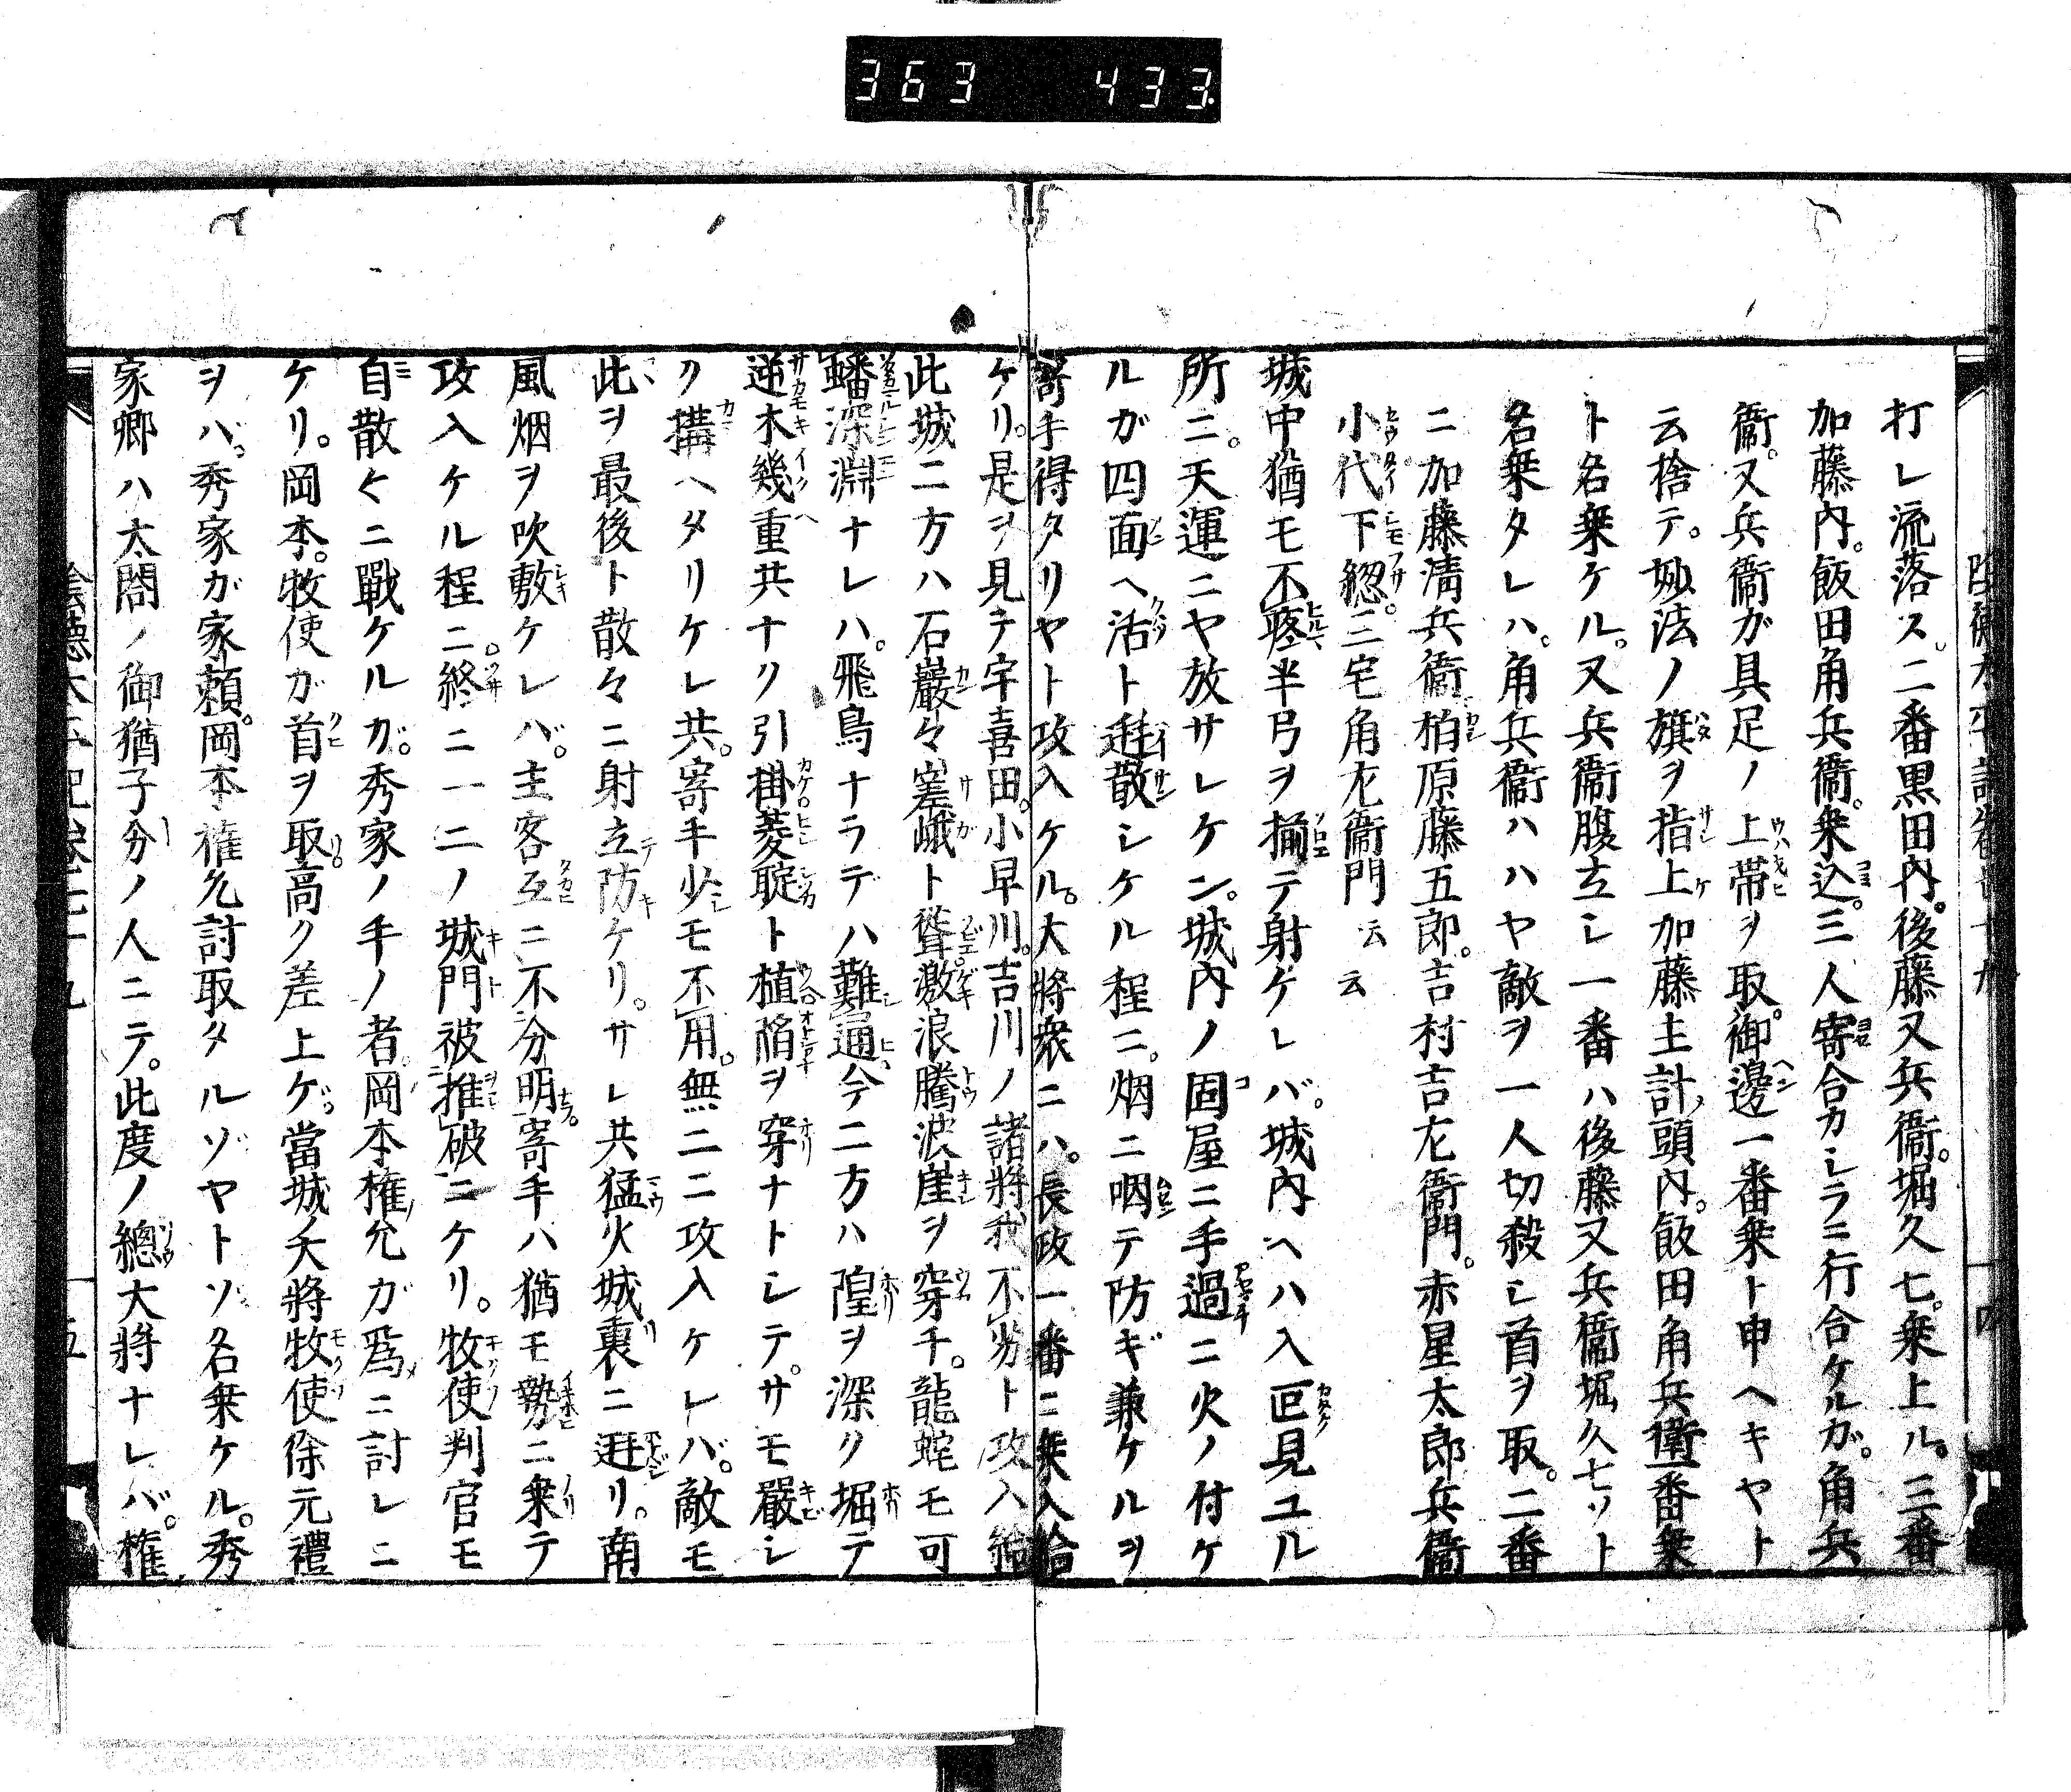 363 433
打レ流落ス。二番黒田内。後藤又兵衞。堀久七。乗上ル。三番
加藤内。飯田角兵衞。乗込。三人寄合カシラニ行合ケルガ。角兵
衞。又兵衞ガ具足ノ上帯ヲ取。御邊一番乗ト申ヘキヤト
云捨テ。妙法ノ旗ヲ指上加藤主計頭内。飯田角兵衞一番乗
ト名乗ケル。又兵衞腹立シ一番ハ後藤又兵衞堀久七ソト
名乗タレハ。角兵衞ハハヤ敵ヲ一人切殺シ首ヲ取。二番
ニ加藤淸兵衞柏原藤五郎。吉村吉左衞門。赤星太郎兵衞
小代下総。三宅角左衞門 云云
城中猶モ不疼半弓ヲ揃テ射ケレバ。城内ヘハ入叵見ユル
所ニ。天運ニヤ放サレケン。城内ノ固屋ニ手過ニ火ノ付ケ
ルガ四面ヘ活ト迸散シケル程ニ。烟ニ咽テ防ギ兼ケルヲ
寄手得タリヤト攻入ケル。大將衆ニハ。長政一番ニ乗入給
ケリ。是ヲ見テ宇喜田。小早川。吉川ノ諸將我不劣ト攻入給
此城二方ハ石巖々嵳峨ト聳。激浪騰波崖ヲ穿チ。龍蛇モ可
蟠深淵ナレハ。飛鳥ナラデハ難通今二方ハ隍ヲ深ク堀テ
逆木幾重共ナク引掛菱聢ト植穽ヲ穿ナトシテ。サモ嚴シ
ク搆ヘタリケレ共。寄手少モ不用。無二ニ攻入ケレバ。敵モ
此ヲ最後ト散々ニ射立防ケリ。サレ共猛火城裏ニ迸リ。南
風烟ヲ吹敷ケレバ。主客互ニ不分明寄手ハ猶モ勢ニ乗テ
攻入ケル程ニ。終ニ一二ノ城門被推破ニケリ。牧使判官モ
自散々ニ戰ケルガ。秀家ノ手ノ者。岡本權允ガ爲ニ討レニ
ケリ。岡本。牧使ガ首ヲ取。高ク差上ゲ。當城ノ大將牧使徐元禮
ヲハ。秀家ガ家頼。岡本權允討取タルゾヤトソ名乗ケル。秀
家卿ハ太閤ノ御猶子分ノ人ニテ。此度ノ總大將ナレバ。權